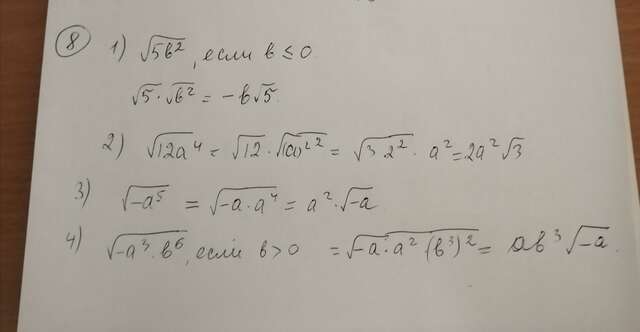 8
1) √5b², если b ≤ 0
√5·√b² = -b√5
2) √12a⁴ = √12·√(a²)² = √3·2²·a² = 2a²√3
3) √-a⁵ = √-a·a⁴ = a²·√-a
4) √-a³·b⁶, если b>0 = √-a·a²(b³)² = ab³√-a.